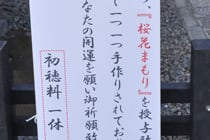 、『桜花まもり』を授与
て一つ一つ手作りされてお
なたの開運を願い御祈願
初穂料 一体